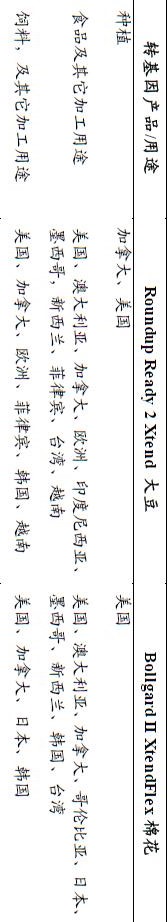 转基因产品/用途 Roundup Ready 2 Xtend 大豆 Bollgard II XtendFlex 棉花
种植 加拿大、美国 美国
食品及其它加工用途 美国、澳大利亚、加拿大、欧洲、印度尼西亚、 美国、澳大利亚、加拿大、哥伦比亚、日本、
墨西哥，新西兰、菲律宾、台湾、越南 墨西哥、新西兰、韩国、台湾
饲料，及其它加工用途 美国、加拿大、欧洲、菲律宾、韩国、越南 美国、加拿大、日本、韩国